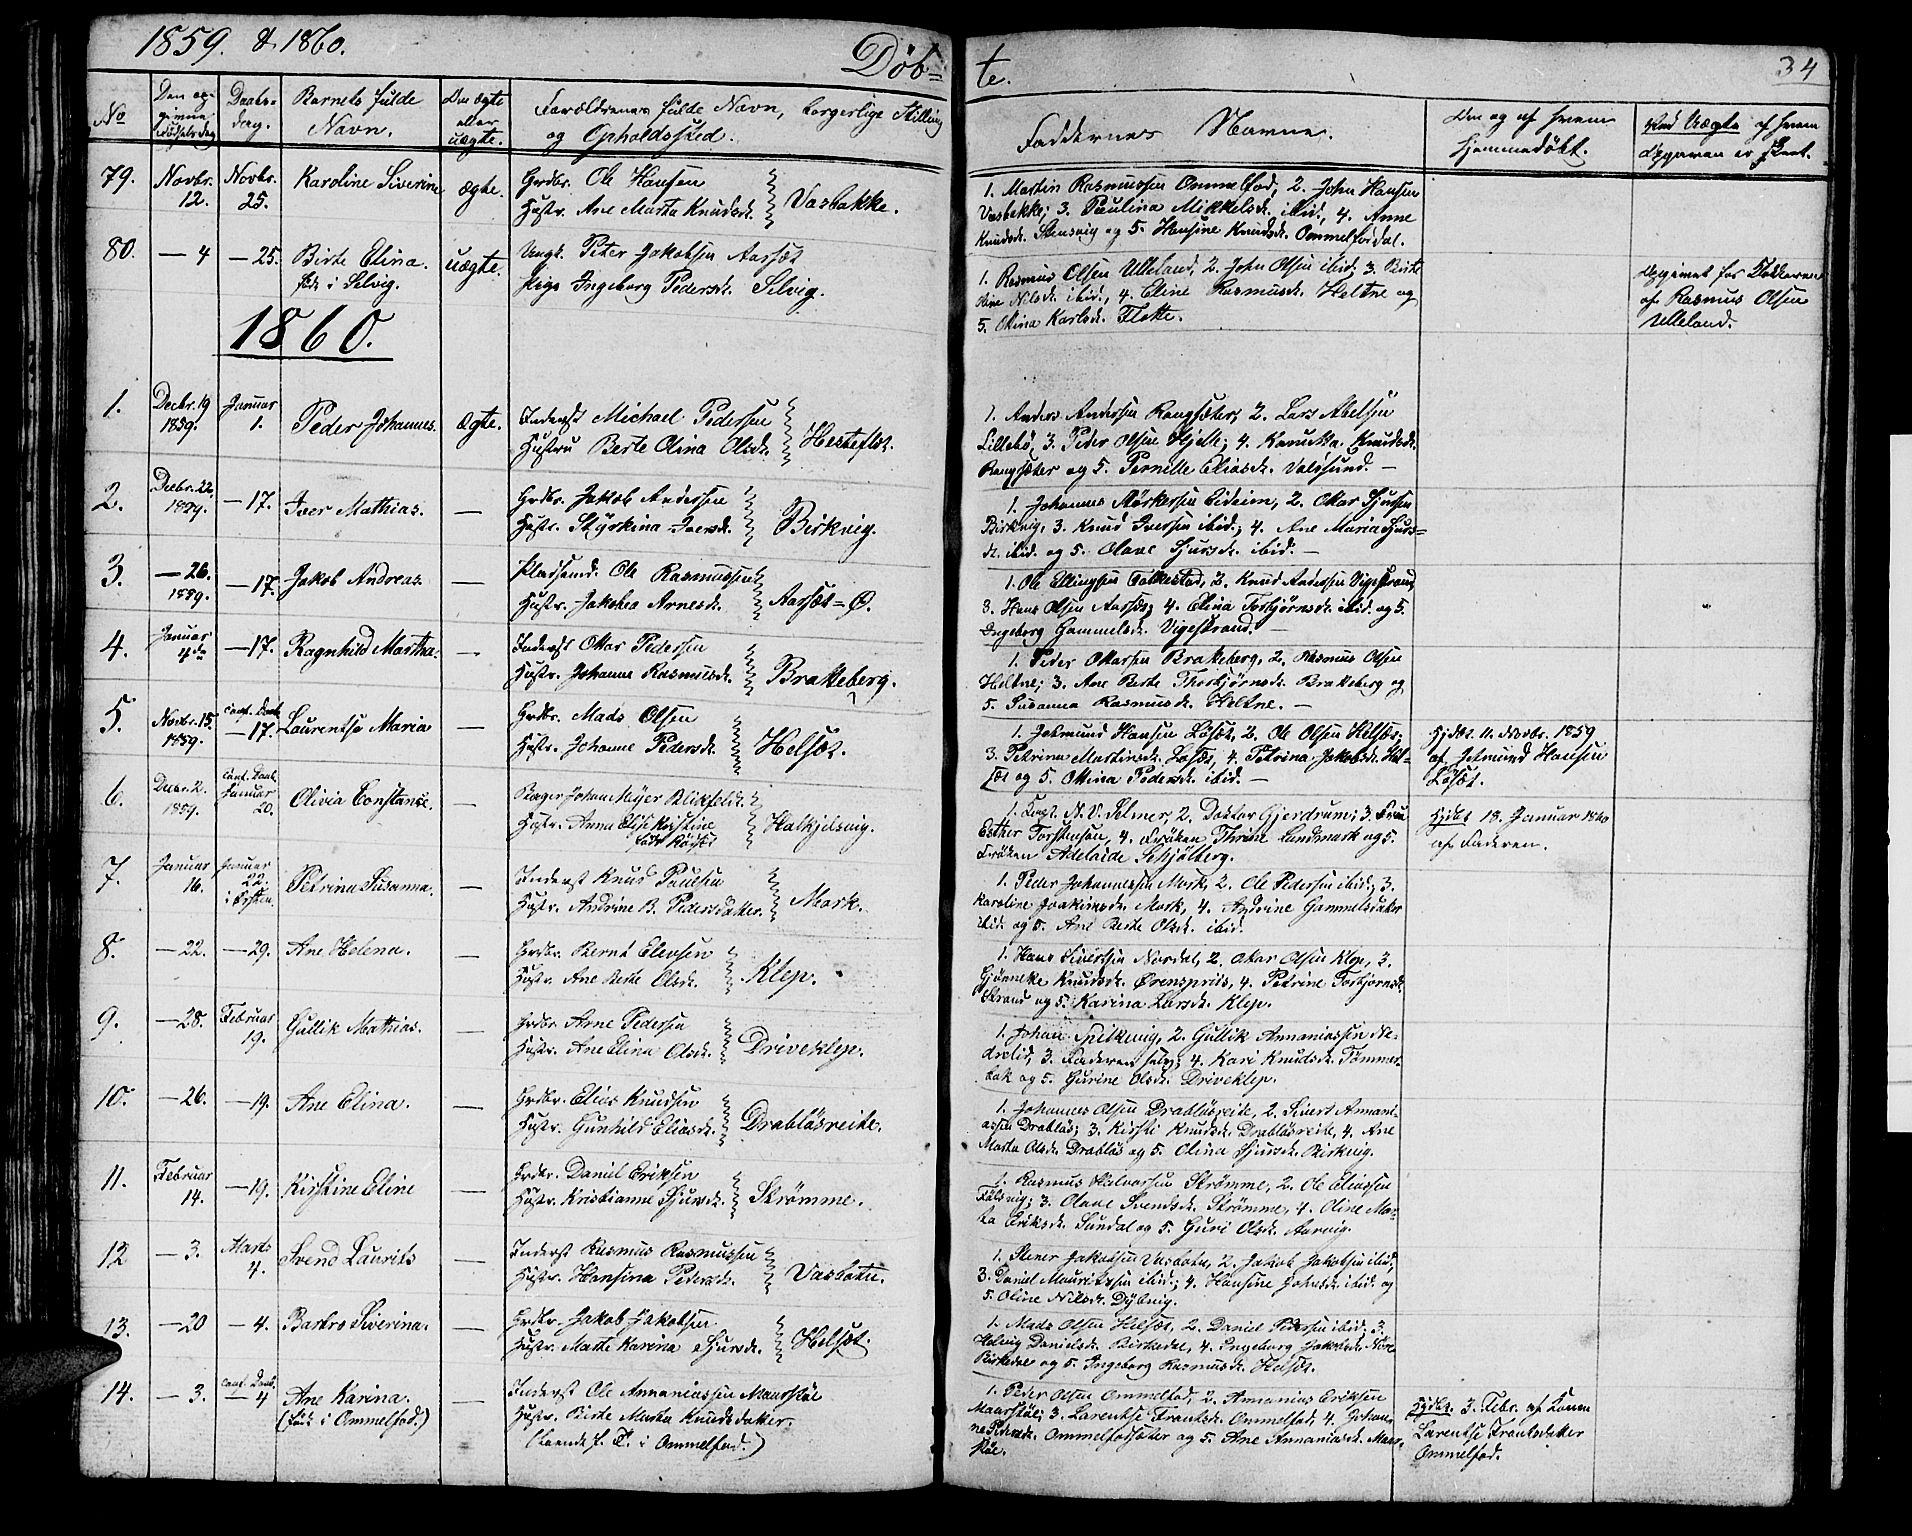 1859. & 1860.
Døb-
te.
34
No
Den op-
givne
Fødselsdag
Daabs-
dag.
Barnets fulde
Navn.
Om ægte
eller
uægte.
Forældrenes fulde Navn, borgerlige Stilling
og Opholdssted.
Faddernes Navne.
Om og af hvem
hjemmedøbt.
Ved Uægte af hvem
Opgaven er skeet.
79. Novbr. 12. Novbr. 25. Karoline Siverine ægte. Grdbr. Ole Hansen
Hustr. Ane Marta Knudsdr. Vasbakke.
1. Martin Rasmussen Ommelfod, 2. John Hansen
Vasbakke; 3. Paulina Mikkelsdr. ibid., 4. Anne
Knudsdr. Stensvig og 5. Hansine Knudsdr. Ommelfordal.
80. — 4 — 25. Birte Elina. uægte. Ungk. Peter Jakobsen Aarsæt
født i Selvig. Pige Ingeborg Pedersdr. Selvig.
1. Rasmus Olsen Ulleland, 2. John Olsen ibid; 3. Birte
Nilsdr. ibid., 4. Eline Rasmusdr. Heltne og
5. Olina Karlsdr. Flotte.
Opgivet for
af Rasmus Olsen
Ulleland.
1860.
1. Decbr. 19 1859. Januar 1. Peder Johannes. Ægte. Inderst Michael Pedersen
Hustru Berte Olina Olsdr. Hesteflot.
1. Anders Andersen Rangsæter, 2. Lars Abelsen
Lillebø, 3. Peder Olsen Hjelle; 4. Knudsdr.
Rangsæter og 5. Pernille Eliasdr. Valøsund. —
2. Decbr. 22, 1859. — 17. Iver Mathias. — Grdbr. Jakob Andersen
Hustr. Styrkina Iversdr. Birkvig.
1. Johannes Størkersen Eideim, 2. Okar Sjursen
Birkvig, 3. Knud Iversen ibid.; 4. Ane Maria Sjurs-
dr. ibid. og 5. Olave Sjursdr. ibid. —
3. — 26. 1859. — 17. Jakob Andreas. — Pladsmd. Ole Rasmussen
Hustr. Jakobea Arnesdr. Aarsæt-Ø.
1. Ole Ellingsen Folkestad, 2. Knud Andersen Vigestrand,
3. Hans Olsen Aarsæt; 4. Elina Torbjørnsdr. ibid. og 5.
Ingeborg Gammelsdr. Vigestrand. —
4. Januar 4de — 17. Ragnhild Martha. — Inderst Okar Pedersen
Hustr. Johanne Rasmusdr. Brakeberg.
1. Peder Okarsen Brakeberg, 2. Rasmus Olsen
Heltne; 3. Ane Berte Thorbjørnsdr. Brakeberg og
5. Susanna Rasmusdr. Heltne. —
5. Novbr. 15. 1859. conf. Daab — 17. Laurentse Maria — Grdbr. Mads Olsen
Hustr. Johanne Pedersdr. Helsæt.
1. Jetmund Hansen Løsæt, 2. Ole Olsen Helsæt;
3. Petrina Martinsdr. Løsæt, 4. Petrina Jakobsdr. Hel-
sæt og 5. Ottina Pedersdr. ibid. —
Hjdøbt. 11. Novbr. 1859
af Jetmund Hansen
Løsæt.
6. Decbr. 2. 1859. conf. Daab. Januar 20. Olivia Constance. — Johan Meyer Blikfeldt.
Hustr. Anna Elise Kristine
født Landmark
Halkjelsvig.
1. N. V. Selmer, 2. Doktor Gjerdrum; 3. Frue
Esther Torstensen, 4. Frøken Thrine Landmark og 5.
Frøken Adelaide Schjølberg.
Hjdøbt 18. Januar 1860
af Faderen.
7. Januar 16. Januar 22. i Ørsten. Petrina Susanna. — Inderst Knud Paulsen
Hustr. Andrine B. Pedersdatter. Mork.
1. Peder Johannessen Mork, 2. Ole Pedersen ibid; 3.
Karoline Joakimsdr. Mork, 4. Andrine Gammelsdatter
ibid. og 5. Ane Berte Olsdr. ibid.
8. — 22. — 29. Ane Helena. — Grdbr. Bernt Elevsen
Hustr. Ane Berte Olsdr. Klep.
1. Hans Sivertsen Nordal, 2. Okar Olsen Klep, 3.
Knudsdr. Ørensprits, 4. Petrine Torbjørnsdr.
Strand og 5. Karina Larsdr. Klep.
9. — 28. Februar 19. Gullik Mathias. — Grdbr. Arne Pedersen
Hustr. Ane Elina Olsdr. Driveklep.
1. Johan Spilkevig, 2. Gullik Annaniassen Ne-
drelid, 3. Faderen selv; 4. Kari Knudsdr. Tømmer-
bak og 5. Gurine Olsdr. Driveklep.
10. — 26. — 19. Ane Elina. — Grdbr. Elias Knudsen
Hustr. Gunhild Eliasdr. Drabløsreite.
1. Johannes Olsen Drabløsreite, 2. Sivert Annani-
assen Drabløs; 3. Kirsti Knudsdr. Drabløsreite, 4. Ane
Marta Olsdr. Drabløs og 5. Olina Sjursdr. Birkvig.
11. Februar 14. — 19. Kirstine Eline — Grdbr. Daniel Eriksen
Hustr. Kristianne Sjursdr. Strømme.
1. Rasmus Halvorsen Strømme, 2. Ole Eliassen
Følsvig; 3. Olave Svendsdr. Strømme, 4. Oline Mar-
ta Eriksdr. Sundal og 5. Guri Olsdr. Aarvig.
12 — 3. Marts 4. Svend Laurits — Inderst Rasmus Rasmussen
Hustr. Hansina Pedersdr. Vasbotn.
1. Stener Jakobsen Vasbotn, 2. Jakob Jakobsen ibid;
3. Daniel Mauritzsen ibid; 4. Hansine Johnsdr. ibid. og
5. Oline Nilsdr. Dybvig.
13. — 20 — 4. Barbro Siverina. — Grdbr. Jakob Jakobsen
Hustr. Marte Karina Sjursdr. Helsæt.
1. Mads Olsen Helsæt, 2. Daniel Pedersen ibid; 3.
Helvig Danielsdr. Birkedal, 4. Ingeborg Jakobsdr. Nøre
Birkedal og 5. Ingeborg Rasmusdr. Helsæt.
14. — 3. conf. Daab. — 4 Ane Karina. — Inderst Ole Annaniassen Maarstøl
(født i Ommelfod.) Hustr. Birte Marta Knudsdatter.
(boende f. T. i Ommelfod.)
1. Peder Olsen Ommelfod, 2. Annanias Eriksen
Maarstøl; 3. Larentse Frantsdr. Ommelfod, 4. Johan-
ne Pedersdr. Ommelfodsæter og 5. Ane Annaniasdr. Maar-
støl.
Hjdøbt. 3. Febr. af Konen
Larentse Frantsdatter
Ommelfod.